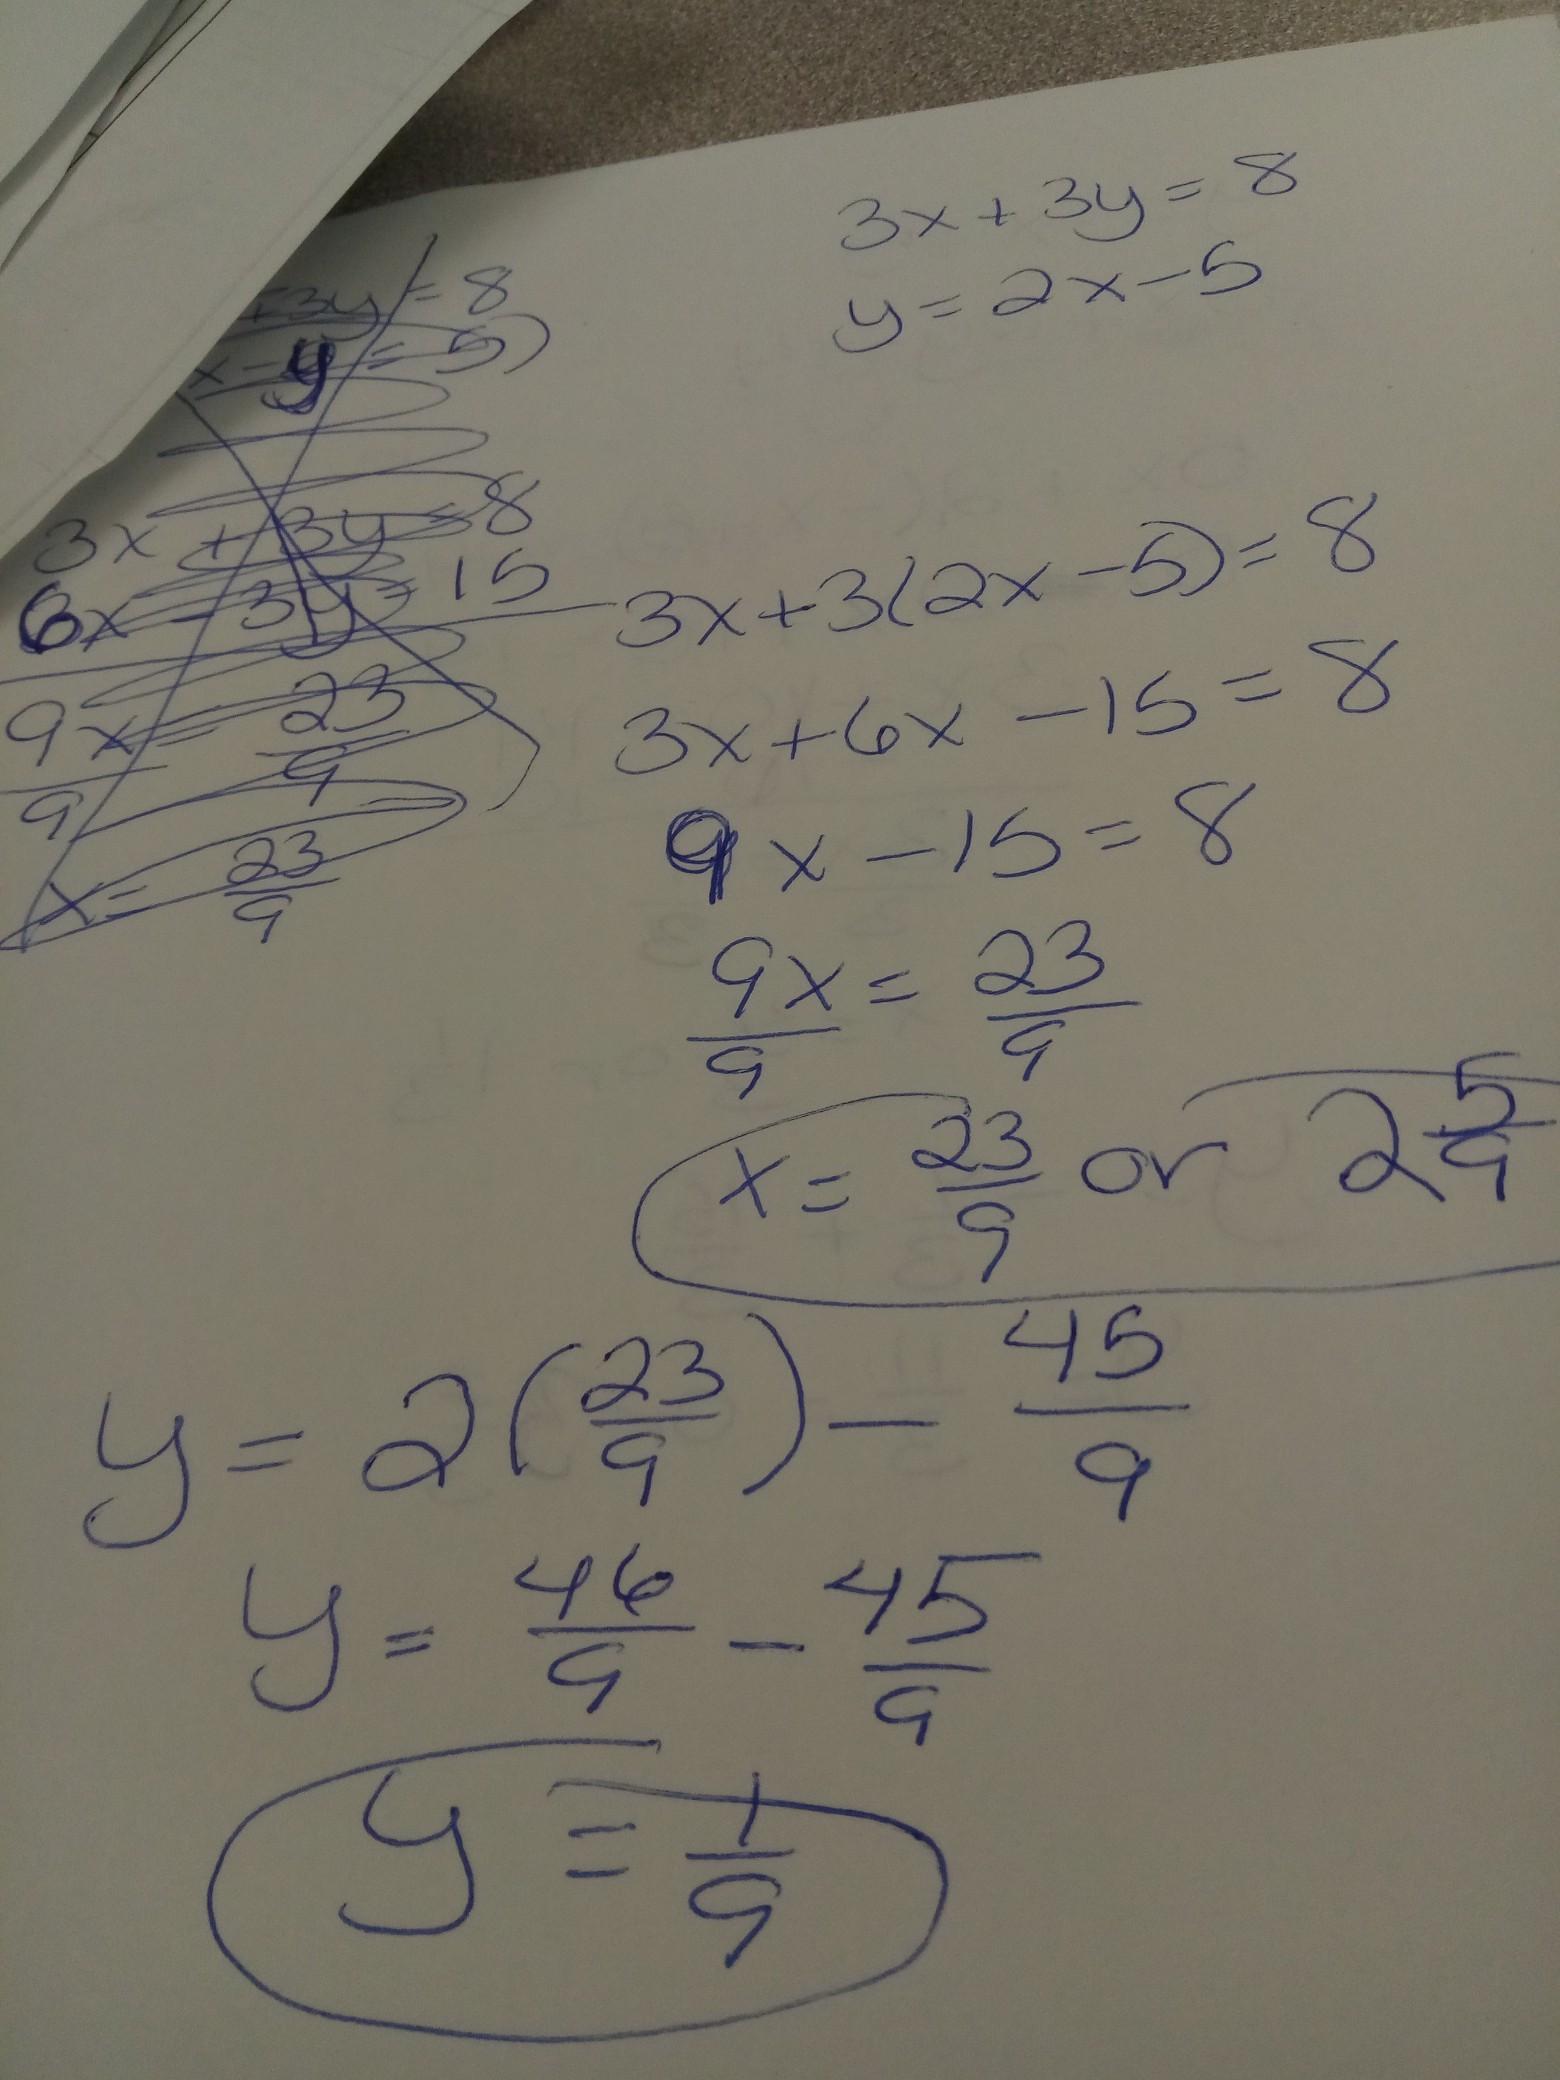 3x + 3y = 8
y = 2x - 5
+3y = 8
x - y = 5)
3x + 3y = 8
6x - 3y = 15
9x = 23
9 9
x = 23/9
3x + 3(2x - 5) = 8
3x + 6x - 15 = 8
9x - 15 = 8
9x/9 = 23/9
x = 23/9 or 2 5/9
y = 2(23/9) - 45/9
y = 46/9 - 45/9
y = 1/9